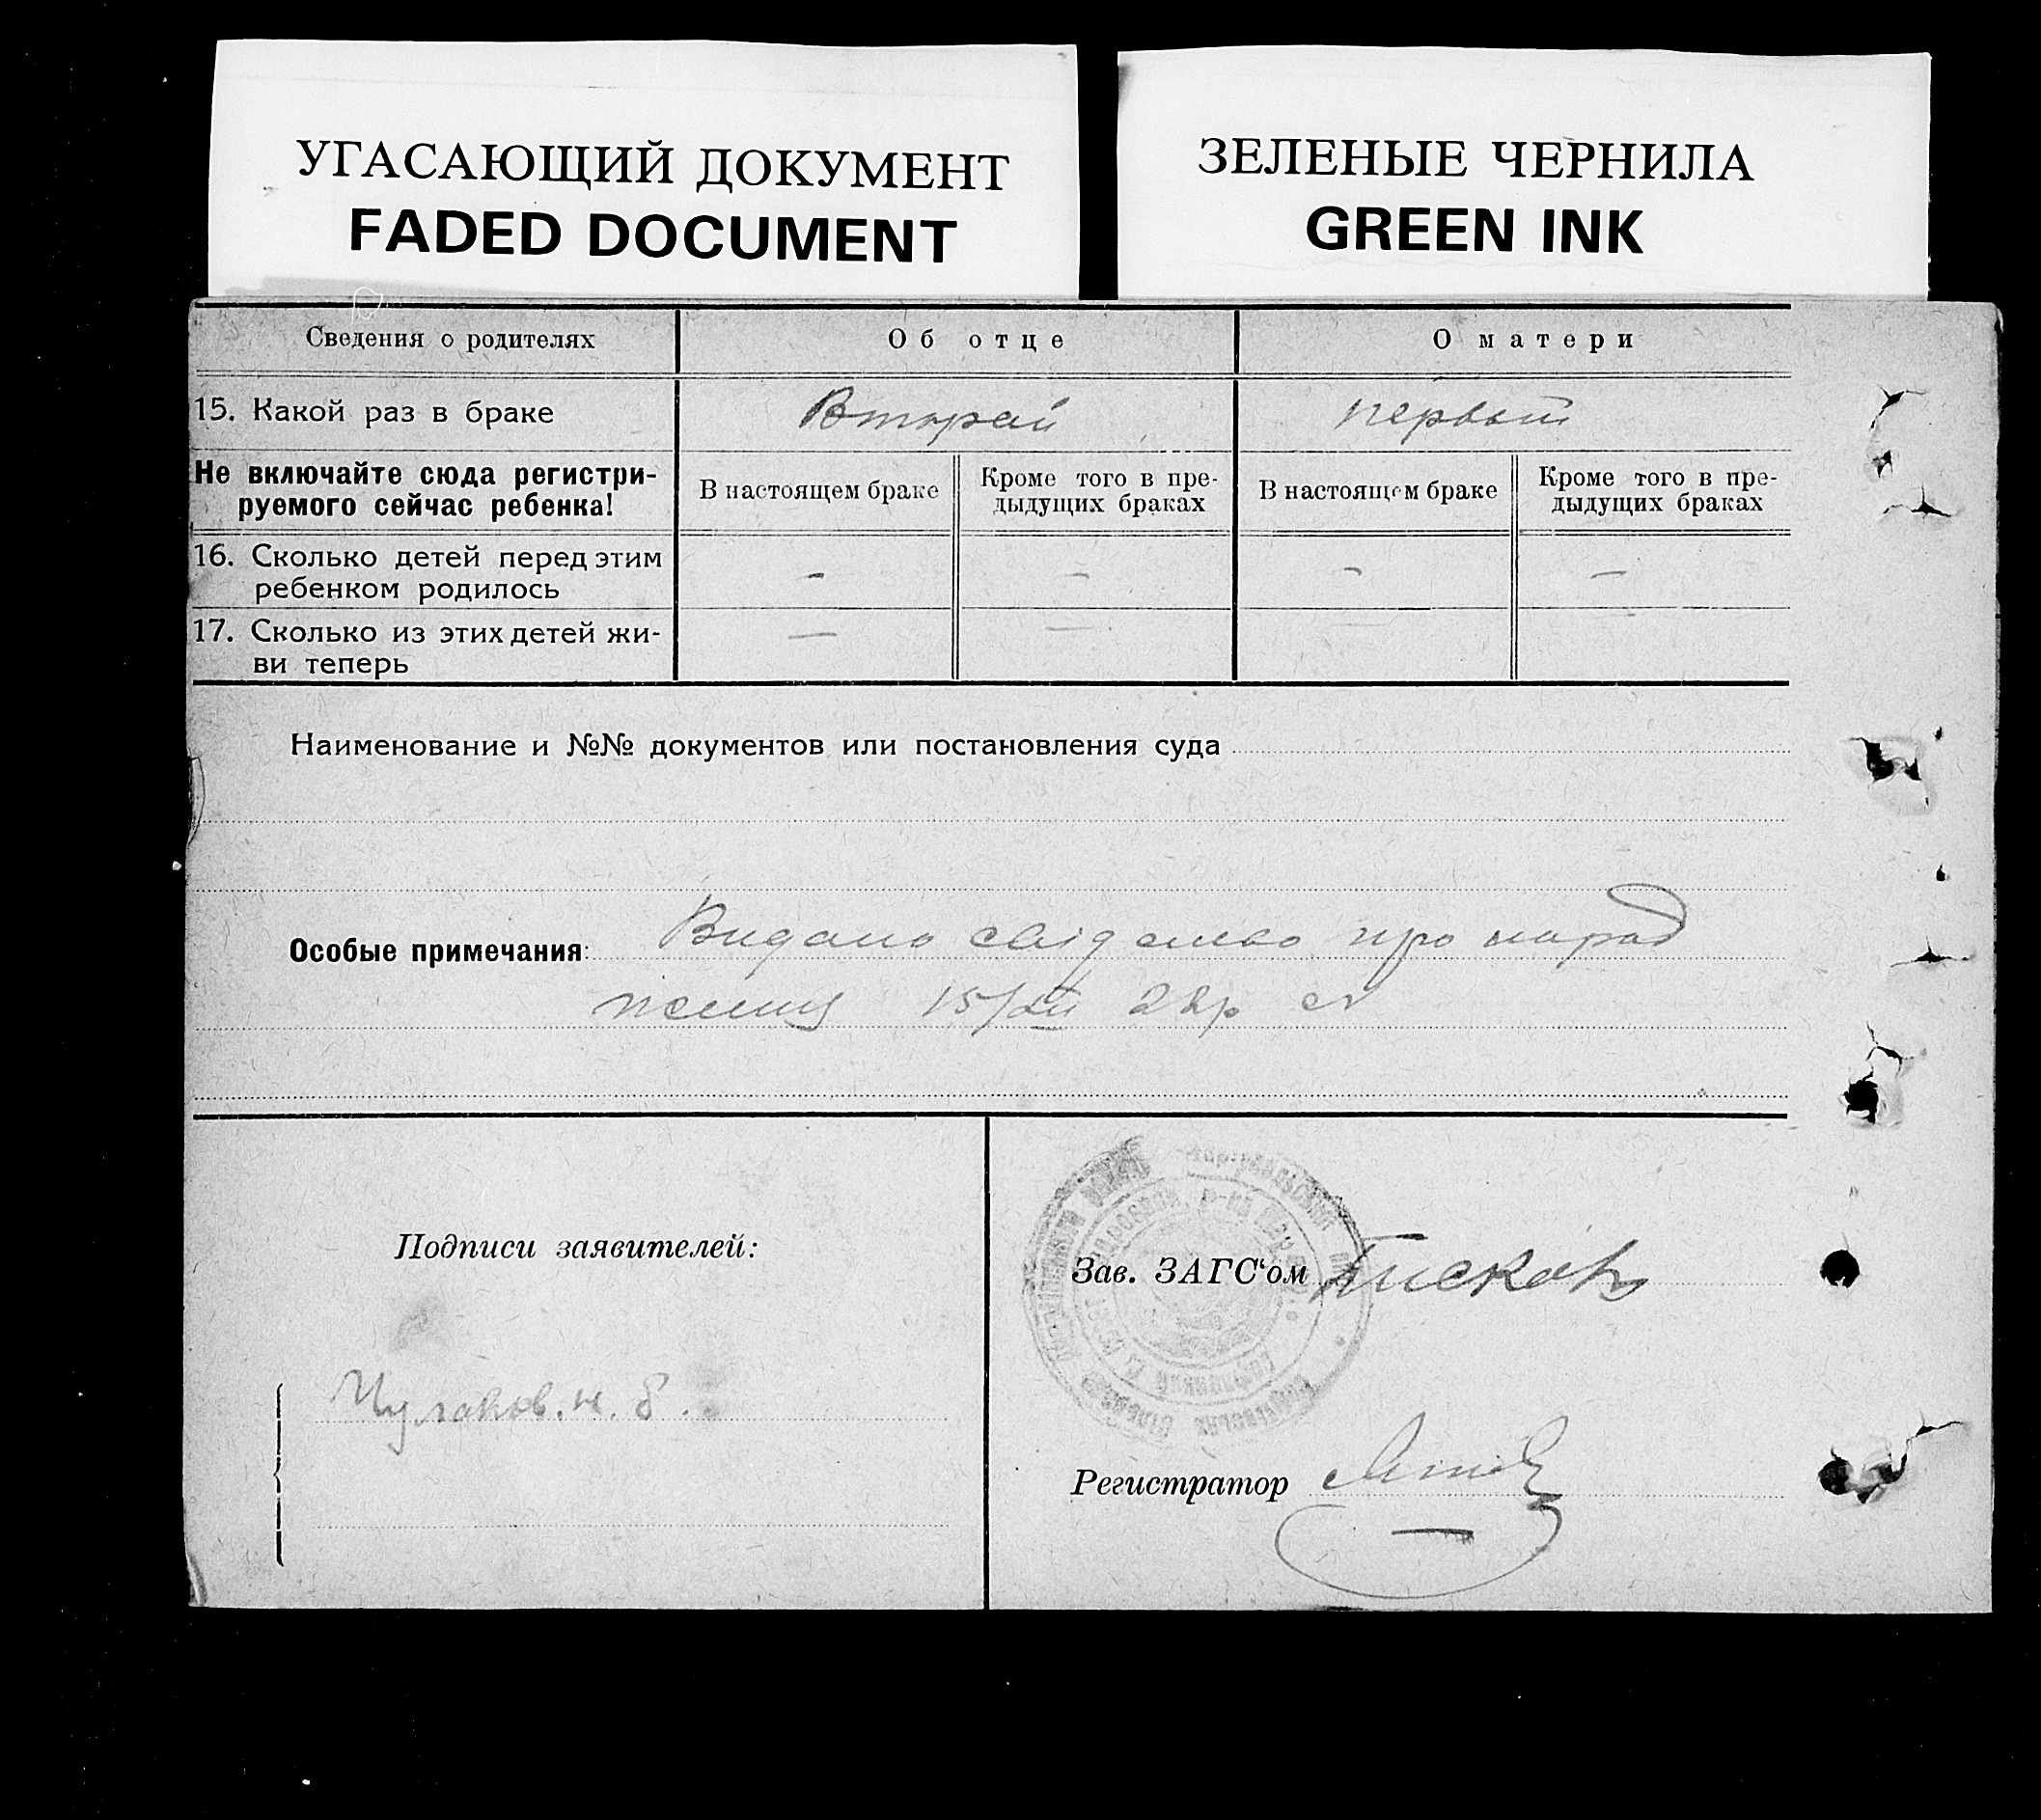 УГАСАЮЩИЙ ДОКУМЕНТ
FADED DOCUMENT
ЗЕЛЕНЫЕ ЧЕРНИЛА
GREEN INK
Сведения о родителях
Об отце
О матери
15. Какой раз в браке
Второй
первый
Не включайте сюда регистри-
руемого сейчас ребенка!
В настоящем браке
Кроме того в пре-
дыдущих браках
В настоящем браке
Кроме того в пре-
дыдущих браках
16. Сколько детей перед этим
ребенком родилось
– – – –
17. Сколько из этих детей жи-
ви теперь
– –
Наименование и №№ документов или постановления суда
Особые примечания:
Видано свідоцтво про народ
15/XII
Подписи заявителей:
Зав. ЗАГС'ом
Регистратор